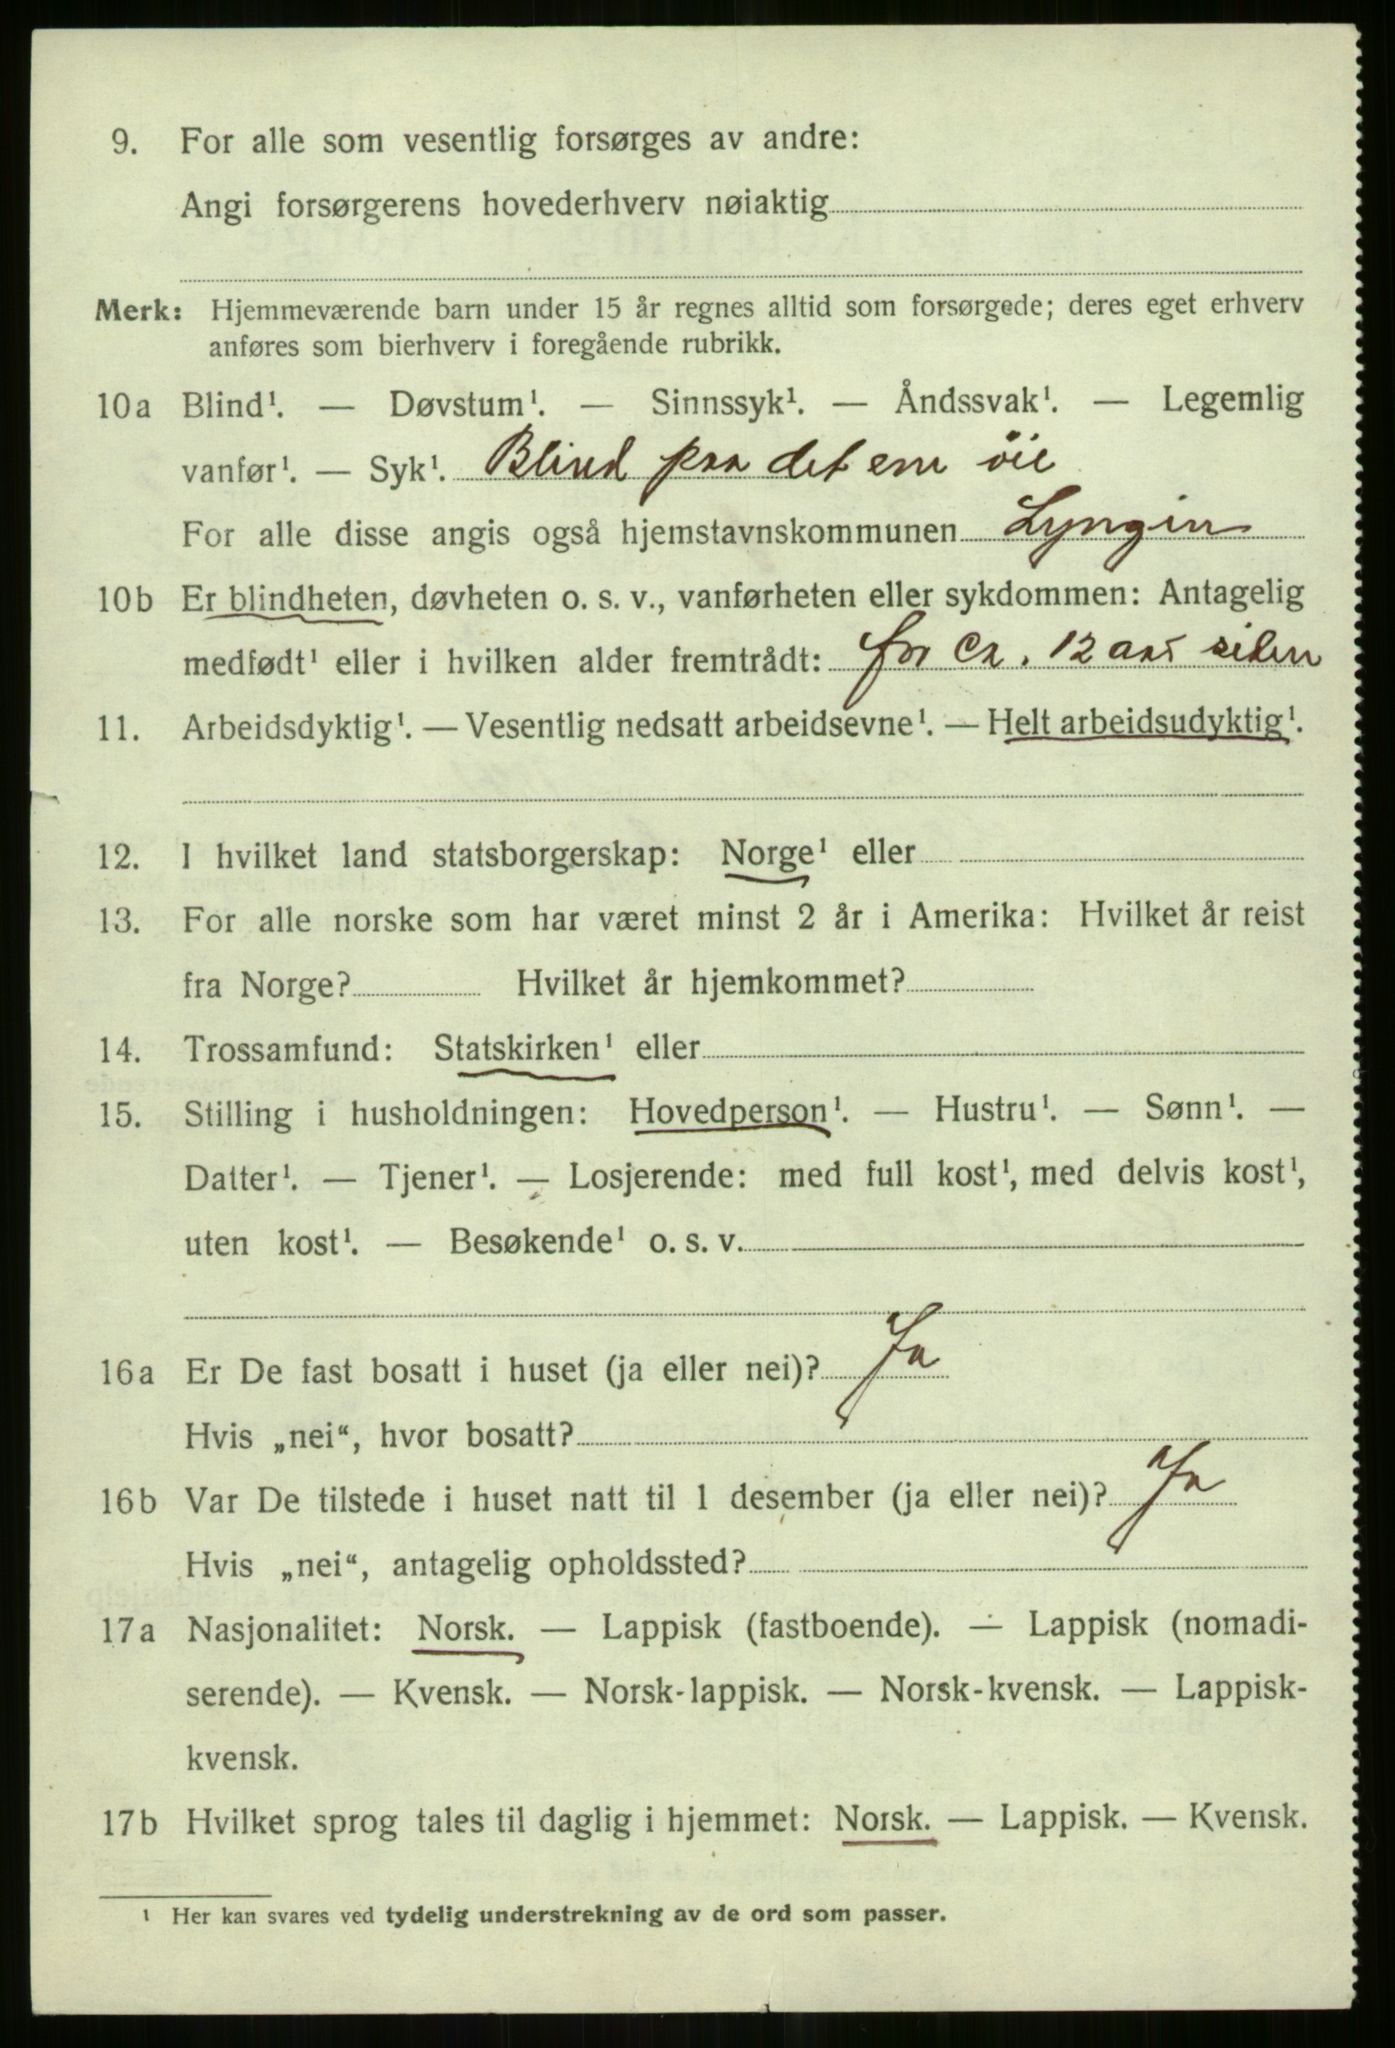 9. For alle som vesentlig forsørges av andre:
Angi forsørgerens hovederhverv nøiaktig
Merk: Hjemmeværende barn under 15 år regnes alltid som forsørgede; deres eget erhverv
anføres som bierhverv i foregående rubrikk.
10a Blind¹. — Døvstum¹. — Sinnssyk¹. — Åndssvak¹. — Legemlig
vanfør¹. — Syk¹. Blind paa det ene öie
For alle disse angis også hjemstavnskommunen Lyngen
10b Er blindheten, døvheten o. s. v., vanførheten eller sykdommen: Antagelig
medfødt¹ eller i hvilken alder fremtrådt: for ca. 12 aar siden
11. Arbeidsdyktig¹. — Vesentlig nedsatt arbeidsevne¹. — Helt arbeidsudyktig¹.
12. I hvilket land statsborgerskap: Norge¹ eller
13. For alle norske som har været minst 2 år i Amerika: Hvilket år reist
fra Norge? Hvilket år hjemkommet?
14. Trossamfund: Statskirken¹ eller
15. Stilling i husholdningen: Hovedperson¹. — Hustru¹. — Sønn¹. —
Datter¹. — Tjener¹. — Losjerende: med full kost¹, med delvis kost¹,
uten kost¹. — Besøkende¹ o. s. v.
16a Er De fast bosatt i huset (ja eller nei)? Ja
Hvis „nei“, hvor bosatt?
16b Var De tilstede i huset natt til 1 desember (ja eller nei)? Ja
Hvis „nei“, antagelig opholdssted?
17a Nasjonalitet: Norsk. — Lappisk (fastboende). — Lappisk (nomadi-
serende). — Kvensk. — Norsk-lappisk. — Norsk-kvensk. — Lappisk-
kvensk.
17b Hvilket sprog tales til daglig i hjemmet: Norsk. — Lappisk. — Kvensk.
¹ Her kan svares ved tydelig understrekning av de ord som passer.